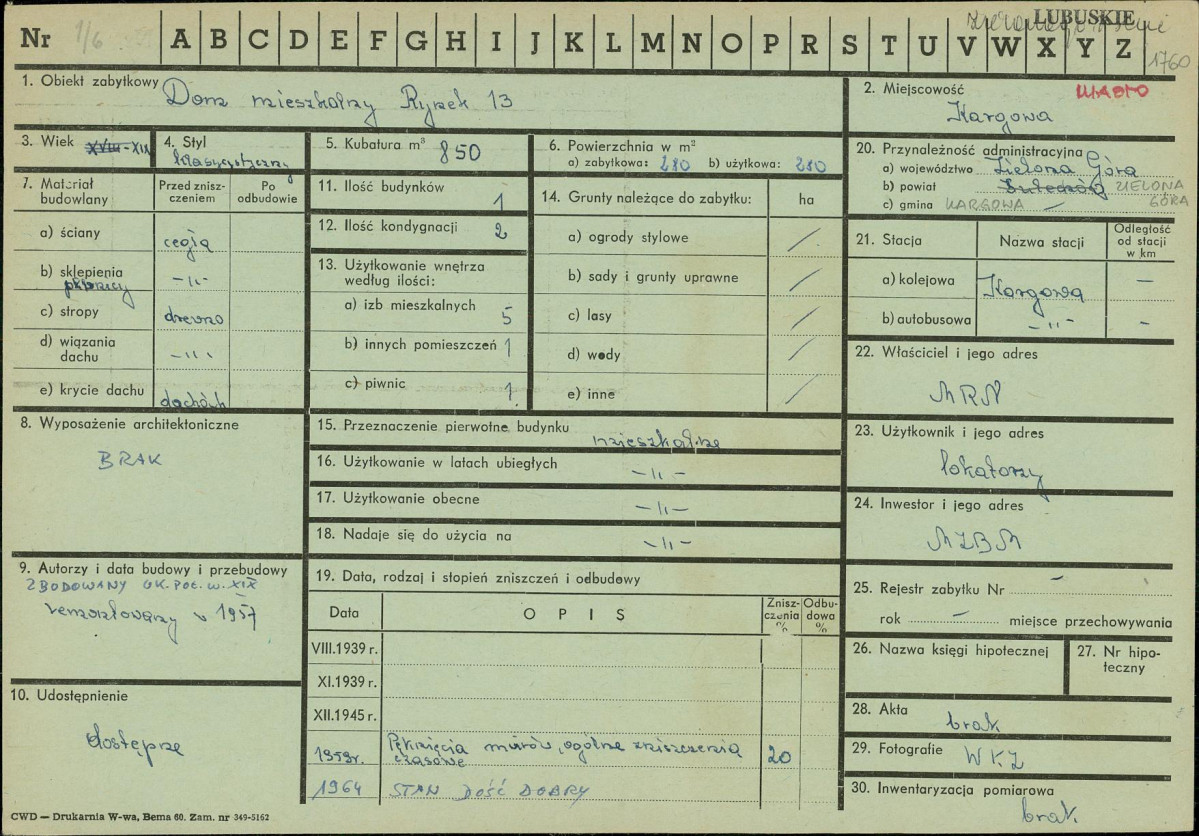 LUBUSKIE
Nr 1/6 A B C D E F G H I J K L M N O P R S T U V W X Y Z
1760
1. Obiekt zabytkowy Dom mieszkalny Rynek 13
2. Miejscowość MIASTO
Kargowa
3. Wiek XVIII-XIX
4. Styl klasycystyczny
5. Kubatura m³ 850
6. Powierzchnia w m²
a) zabytkowa: 280 b) użytkowa: 280
7. Materiał budowlany
Przed zniszczeniem
Po odbudowie
a) ściany cegła
b) sklepienia piwnicy -"-
c) stropy drewno
d) wiązania dachu -"-
e) krycie dachu dachówk
8. Wyposażenie architektoniczne
BRAK
9. Autorzy i data budowy i przebudowy
ZBUDOWANY OK. POŁ. W. XIX
remontowany w 1957
10. Udostępnienie
dostępne
11. Ilość budynków 1
12. Ilość kondygnacji 2
13. Użytkowanie wnętrza
według ilości:
a) izb mieszkalnych 5
b) innych pomieszczeń 1
c) piwnic 1
14. Grunty należące do zabytku: ha
a) ogrody stylowe /
b) sady i grunty uprawne /
c) lasy /
d) wody /
e) inne /
15. Przeznaczenie pierwotne budynku mieszkalne
16. Użytkowanie w latach ubiegłych -"-
17. Użytkowanie obecne -"-
18. Nadaje się do użycia na -"-
19. Data, rodzaj i stopień zniszczeń i odbudowy
Data OPIS Zniszczenia % Odbudowa %
VIII.1939 r.
XI.1939 r.
XII.1945 r.
1959r. Pęknięcia murów, ogólne zniszczenia
czasowe 20
1964 STAN DOŚĆ DOBRY
20. Przynależność administracyjna
a) województwo Zielona Góra
b) powiat Sulechów ZIELONA
GÓRA
c) gmina KARGOWA –
21. Stacja Nazwa stacji Odległość od stacji w km
a) kolejowa Kargowa –
b) autobusowa -"- –
22. Właściciel i jego adres
MRN
23. Użytkownik i jego adres
lokatorzy
24. Inwestor i jego adres
MZBM
25. Rejestr zabytku Nr –
rok – miejsce przechowywania
26. Nazwa księgi hipotecznej
27. Nr hipoteczny
28. Akta
brak
29. Fotografie WKZ
30. Inwentaryzacja pomiarowa
brak
CWD — Drukarnia W-wa, Bema 60. Zam. nr 349-5162